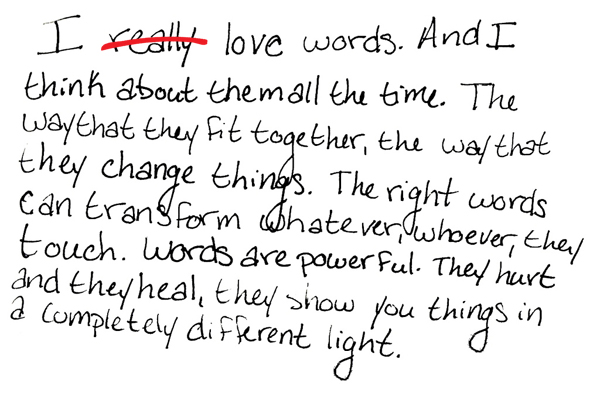 I really love words. And I
think about them all the time. The
way that they fit together, the way that
they change things. The right words
can transform whatever, whoever, they
touch. Words are powerful. They hurt
and they heal, they show you things in
a completely different light.